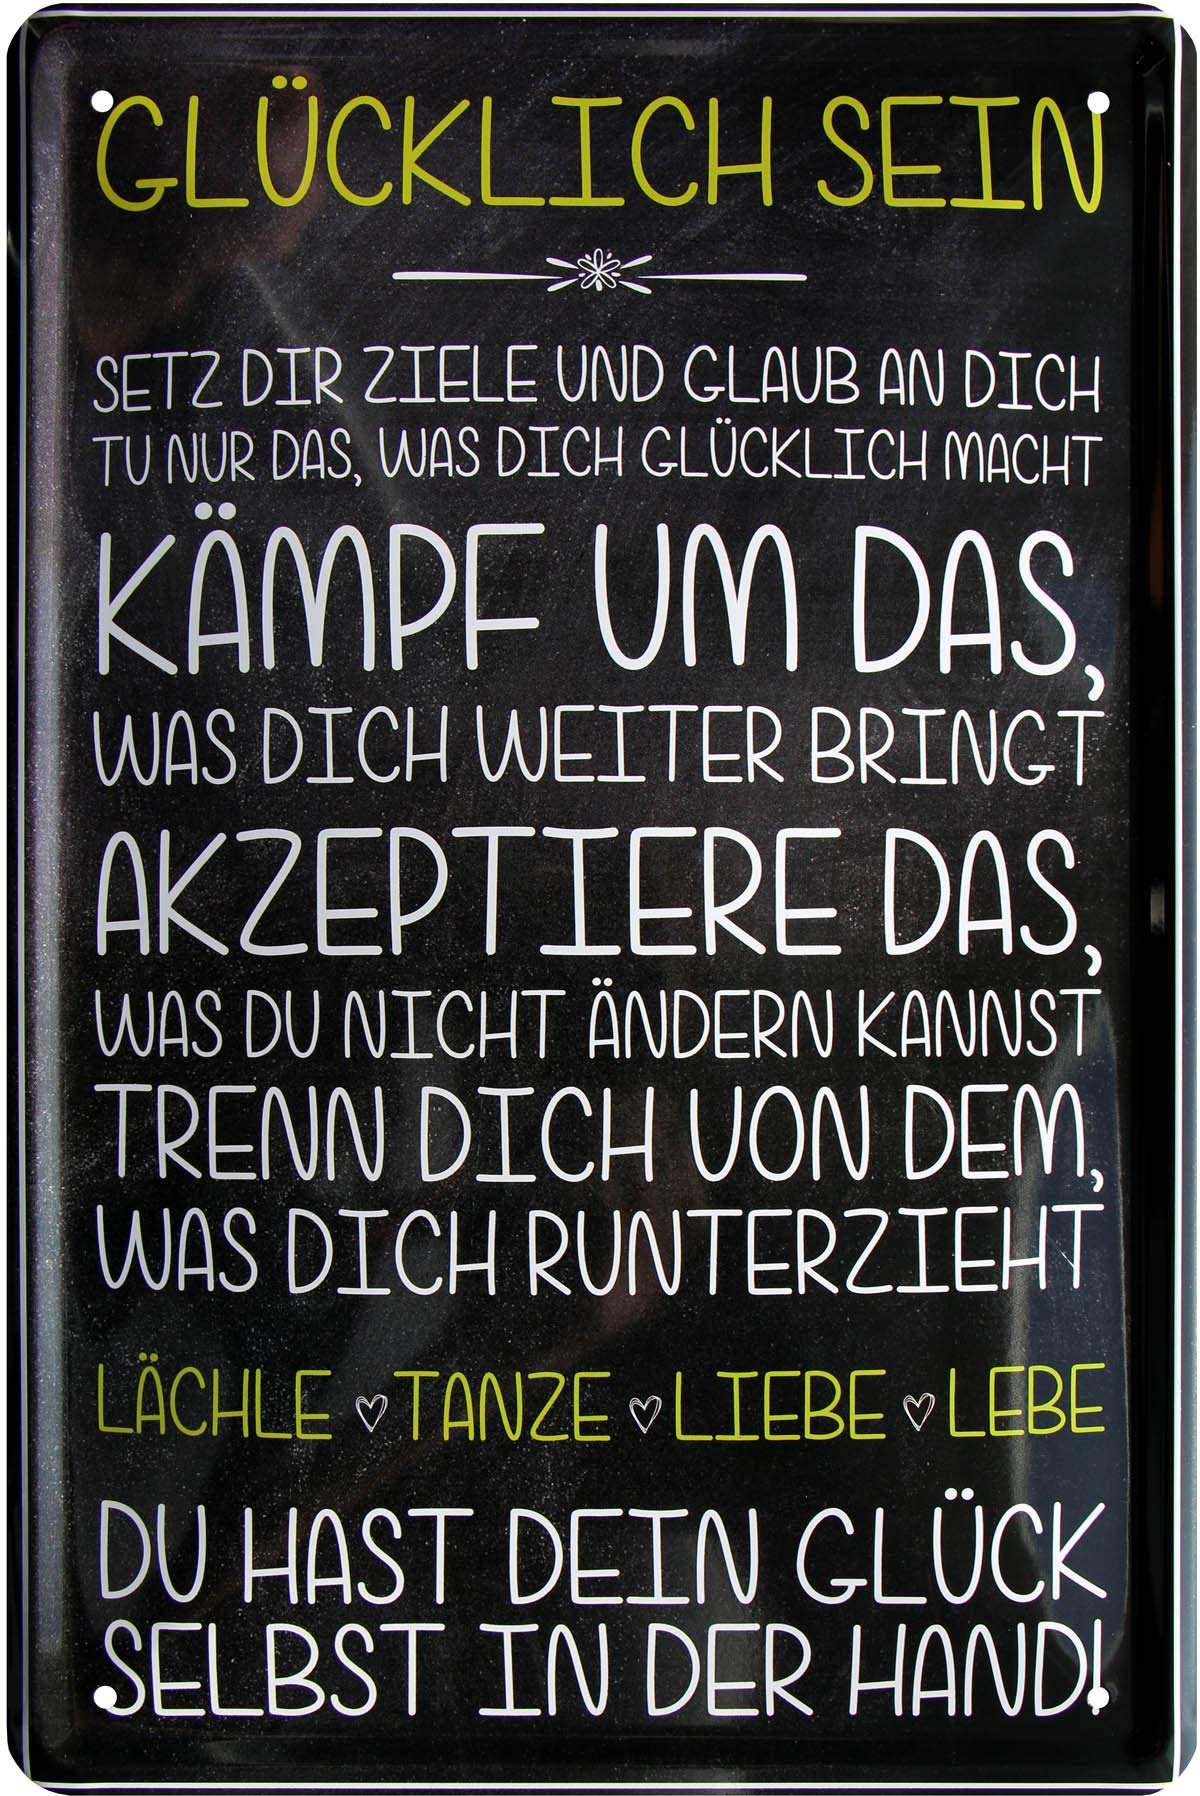 GLÜCKLICH SEIN
SETZ DIR ZIELE UND GLAUB AN DICH
TU NUR DAS, WAS DICH GLÜCKLICH MACHT
KÄMPF UM DAS,
WAS DICH WEITER BRINGT
AKZEPTIERE DAS,
WAS DU NICHT ÄNDERN KANNST
TRENN DICH VON DEM,
WAS DICH RUNTERZIEHT
LÄCHLE ♡ TANZE ♡ LIEBE ♡ LEBE
DU HAST DEIN GLÜCK
SELBST IN DER HAND!